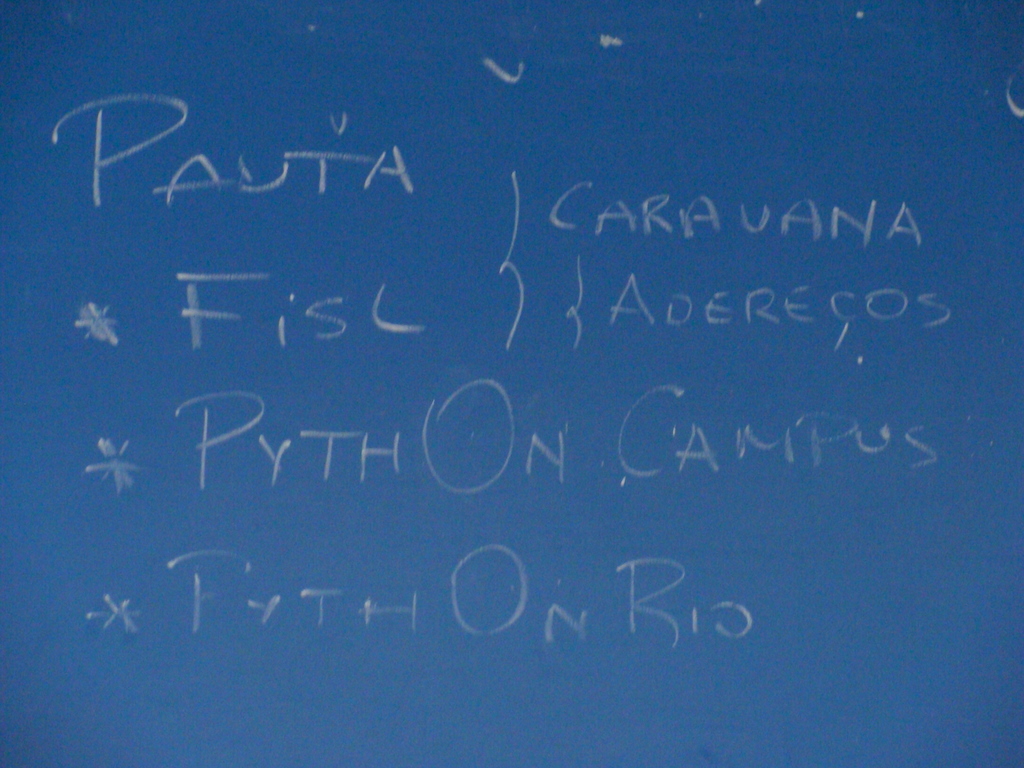 PAUTA
CARAVANA
* FiSL } { ADEREÇOS
* PYTHON CAMPUS
* PYTHON RIO